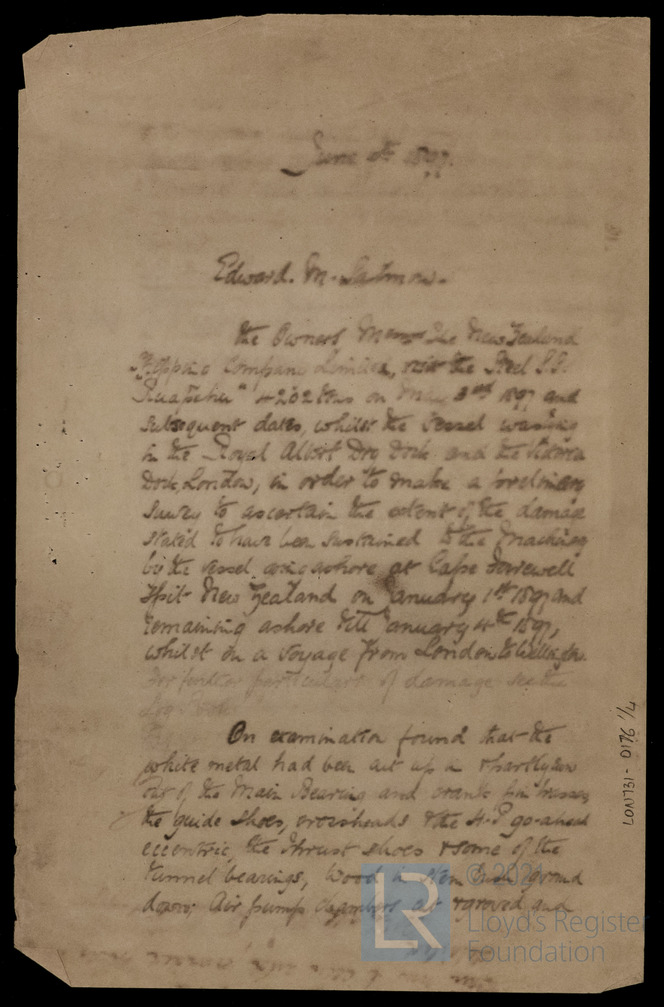 June 9th 1897.
Edward. M. Salmon.
the Owners The New Zealand
Shipping Company Limited, visit the Steel S.S.
"Ruapehu" 4202 tons on May 3rd 1897 and
subsequent dates, whilst the vessel was lying
in the Royal Albert Dry Dock and the Victoria
Dock, London, in order to make a preliminary
survey to ascertain the extent of the damage
stated to have been sustained to the Machinery
by the vessel going ashore at Cape Farewell
Spit New Zealand on January 1st 1897 and
remaining ashore till January 4th 1897,
whilst on a voyage from London to Wellington.
For further particulars of damage see the
Log Book
On examination found that the
white metal had been cut up & partly run
out of the Main Bearing and crank pin brasses,
the guide shoes, crossheads & the H.P. go-ahead
eccentric, the thrust shoes & some of the
tunnel bearings, wood in Stern bush ground
down; Air pump chambers cut & grooved and
LON731-0176 1/4
© 2021
Lloyd's Register
Foundation
LR